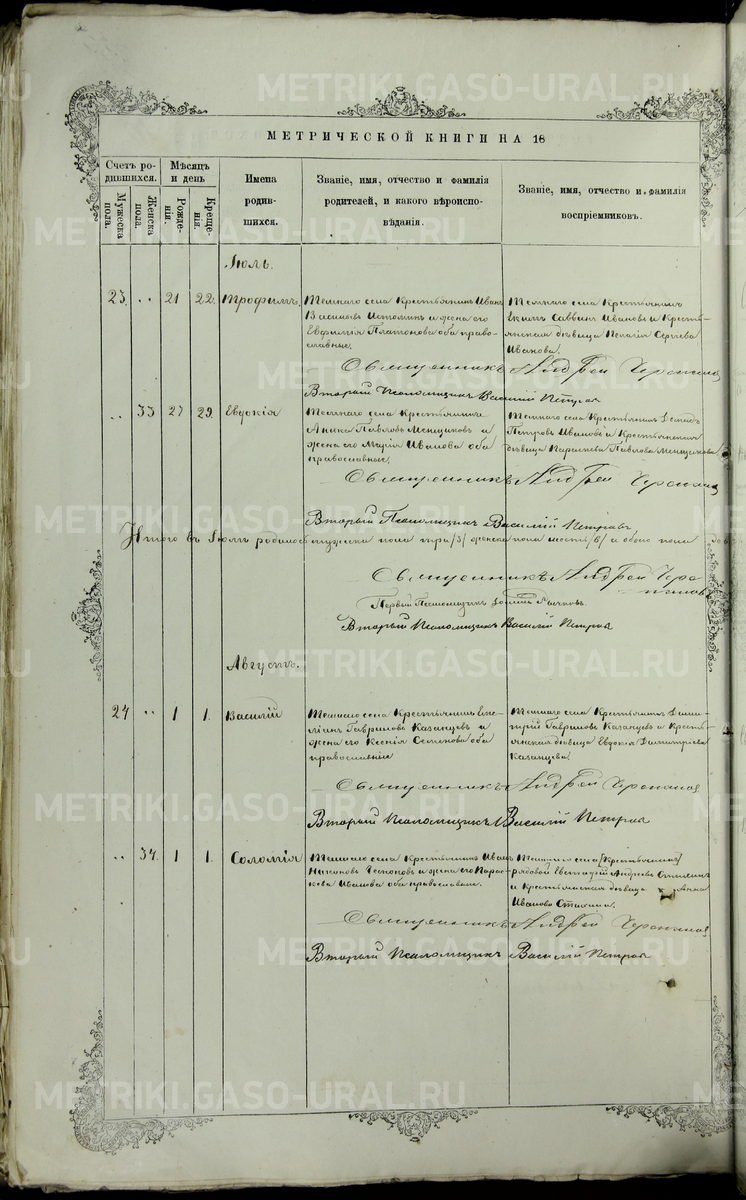 МЕТРИЧЕСКОЙ КНИГИ НА 18
Счетъ ро-
дившихся.
Мужеска
пола.
Женска
пола.
Мѣсяцъ
и день
Рожде-
нія.
Креще-
нія.
Имена
родив-
шихся.
Званіе, имя, отчество и фамилія
родителей, и какого вѣроиспо-
вѣданія.
Званіе, имя, отчество и фамилія
воспріемниковъ.
Іюль.
23 „ 21 22. Трофимъ.
села Крестьянинъ Иванъ
Васильевъ Истоминъ и жена его
Евфимія Платонова оба право-
славные.
села Крестьянинъ
Саввинъ Ивановъ и Кресть-
янская дѣвица Пелагія Сергѣева
Иванова.
Священникъ Андрей Черепанов
Второй Псаломщикъ Василій Петров
„ 33 27 29. Евдокія
села Крестьянинъ
Аника Павловъ Меньщиковъ и
жена его Марія Иванова оба
православные.
села Крестьянинъ
Петровъ Ивановъ и Крестьянская
дѣвица Павлова Меньщикова
Священникъ Андрей Черепанов
Второй Псаломщикъ Василій Петровъ
Итого въ Іюлѣ родилось мужеска пола три /3/ женска пола шесть /6/ и обоего пола
Священникъ Андрей Чере-
пановъ
Первый Псаломщикъ
Второй Псаломщикъ Василій Петров
Августъ.
24 „ 1 1. Василій
села Крестьянинъ
Гавриловъ Казанцевъ и
жена его Ксенія Семенова оба
православные
села Крестьянинъ Дими-
трій Гавриловъ Казанцевъ и Кресть-
янская дѣвица Евдокія Димитріева
Казанцева.
Священникъ Андрей Черепанов
Второй Псаломщикъ Василій Петров
„ 34. 1 1. Соломія
села Крестьянинъ Иванъ
и жена его Парас-
кева Иванова оба православные.
села [Крестьянинъ]
рядовой Андреевъ
и Крестьянская дѣвица Анна
Иванова
Священникъ Андрей Черепанов
Второй Псаломщикъ Василій Петров
METRIKI.GASO-URAL.RU